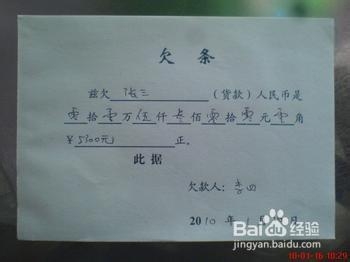 欠 条
兹欠 张三 (货款)人民币是
零拾零万伍仟叁佰零拾零元零角
¥5300元 正.
此据
欠款人:李四
2010年1月 日
Baidu百度经验
jingyan.baidu.com
10-01-16 10:29